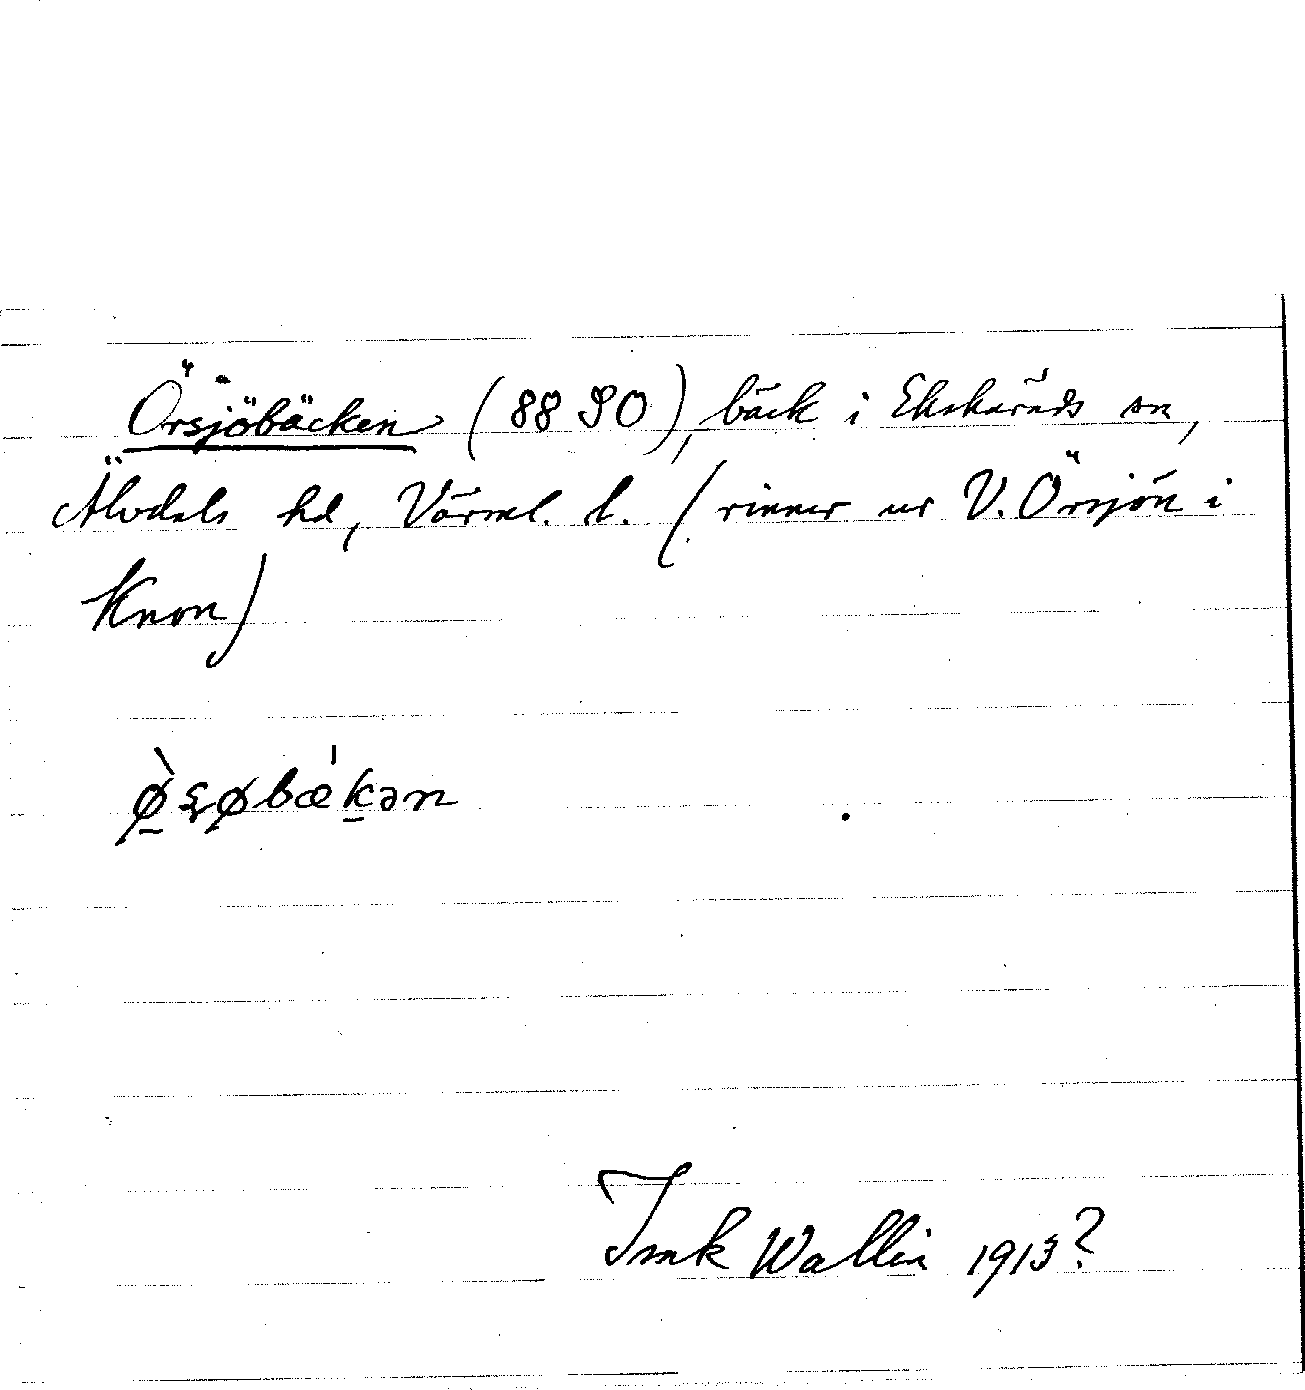 Örsjöbäcken (88 SO), bäck i Ekshärads sn,
Älvdals hd, Värml. l. (rinner ur V. Örsjön i
Knon)
ø̀ʂøbæ'kən
Isak Wallin 1913?